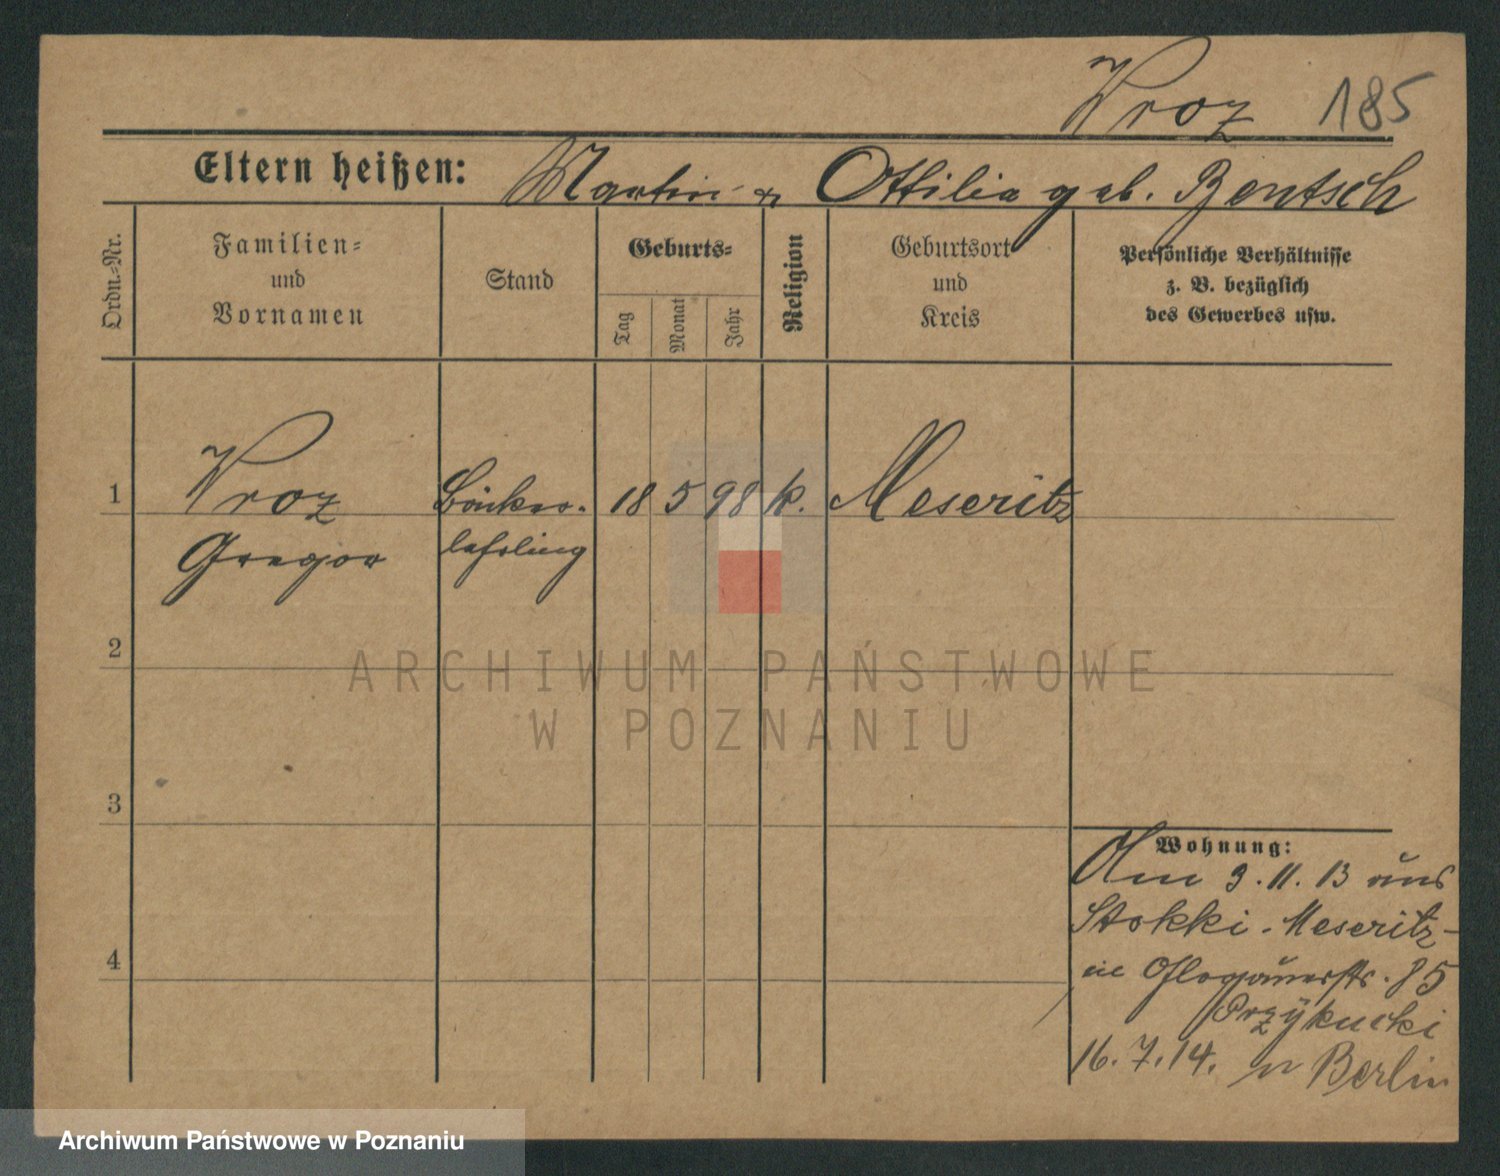 Wroz 185
Eltern heißen: Martin u Ottilia geb. Bentsch
Ordn.-Nr.
Familien-
und
Vornamen
Stand
Geburts-
Tag
Monat
Jahr
Religion
Geburtsort
und
Kreis
Persönliche Verhältnisse
z. B. bezüglich
des Gewerbes usw.
1 Wroz Bäcker- 18 5 98 k. Meseritz
Gregor lehrling
2
3
4
Wohnung:
Am 3.11.13 aus
Stokki-Meseritz-
in Glogauerstr. 85
Przykucki
16.7.14. n Berlin
ARCHIWUM PAŃSTWOWE
W POZNANIU
Archiwum Państwowe w Poznaniu